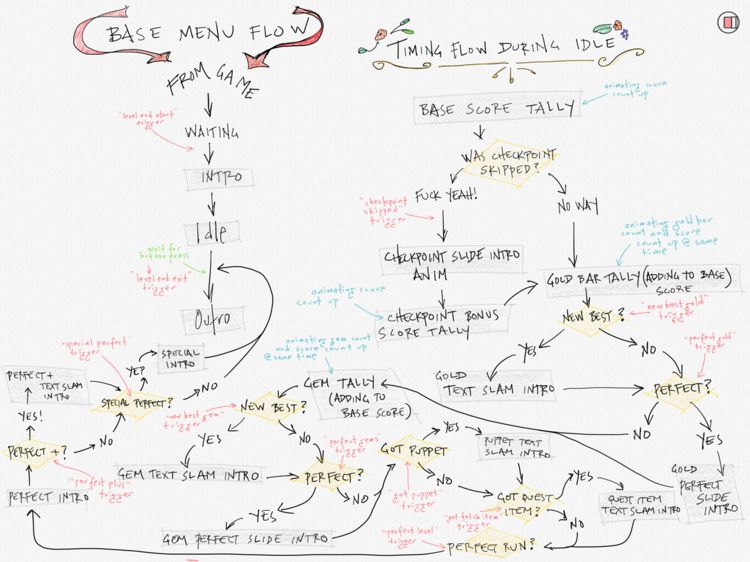 BASE MENU FLOW
FROM GAME
"level end start"
trigger
WAITING
INTRO
Idle
wait for
button press
"level end exit"
trigger
Outro
TIMING FLOW DURING IDLE
BASE SCORE TALLY
animating score
count up
WAS CHECKPOINT
SKIPPED?
FUCK YEAH!
NO WAY
"checkpoint
skipped"
trigger
CHECKPOINT SLIDE INTRO
ANIM
animating gold bar
count and score
count up @ same
time
GOLD BAR TALLY (ADDING TO BASE)
SCORE
animating score
count up
CHECKPOINT BONUS
SCORE TALLY
NEW BEST?
"new best gold"
trigger
YES
NO
"perfect gold"
trigger
GOLD
TEXT SLAM INTRO
PERFECT?
NO
YES
GOLD
PERFECT
SLIDE
INTRO
animating gem count
and score count up
@ same time
GEM TALLY
(ADDING TO
BASE SCORE)
NEW BEST?
"new best gem"
trigger
YES
NO
GEM TEXT SLAM INTRO
PERFECT?
"perfect gems"
trigger
YES
NO
GEM PERFECT SLIDE INTRO
GOT PUPPET
"got puppet"
trigger
YES
NO
PUPPET TEXT
SLAM INTRO
GOT QUEST
ITEM?
"got fetch item"
trigger
YES
NO
QUEST ITEM
TEXT SLAM INTRO
PERFECT RUN?
"perfect level"
trigger
PERFECT INTRO
PERFECT +?
"perfect plus"
trigger
YES!
NO
PERFECT +
TEXT SLAM
INTRO
SPECIAL PERFECT?
"special perfect"
trigger
YEP
NO
SPECIAL
INTRO